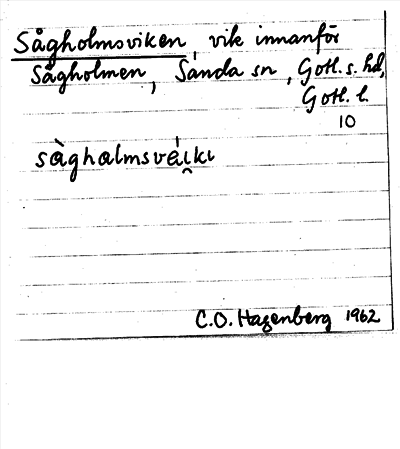 Sågholmsviken, vik innanför
Sågholmen, Sanda sn, Gotl. s. hd,
Gotl. l.
10
sàghalmsvéi̯kı
C.O. Hagenberg 1962